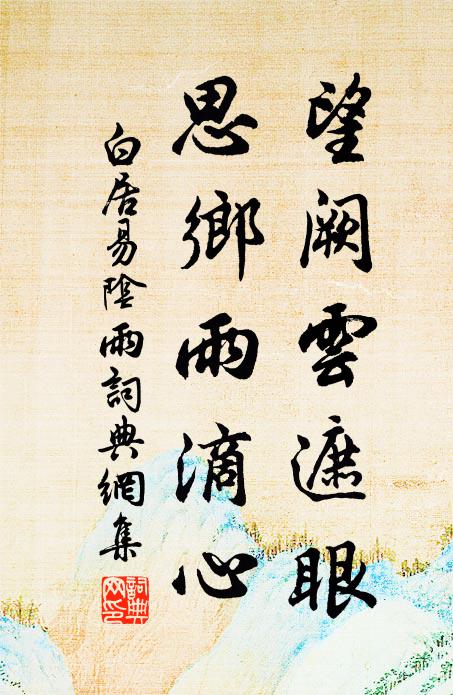 望闕雲遮眼
思鄉雨滴心
白居易陰雨詞典網集